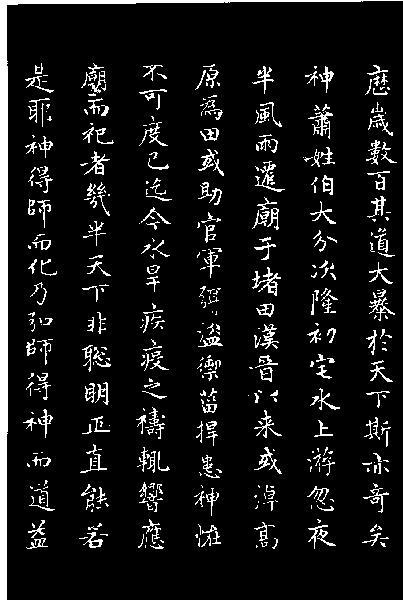 歷歲數百其道大暴於天下斯亦奇矣
神蕭姓伯大分次隆初宅水上游忽夜
半風雨遷廟于堵田漢晉以来或淖髙
原為田或助官軍弭盜禦菑捍患神怪
不可度已迄今水旱疾疫之禱輒響應
廟而祀者幾半天下非聰明正直能若
是耶神得師而化乃知師得神而道益